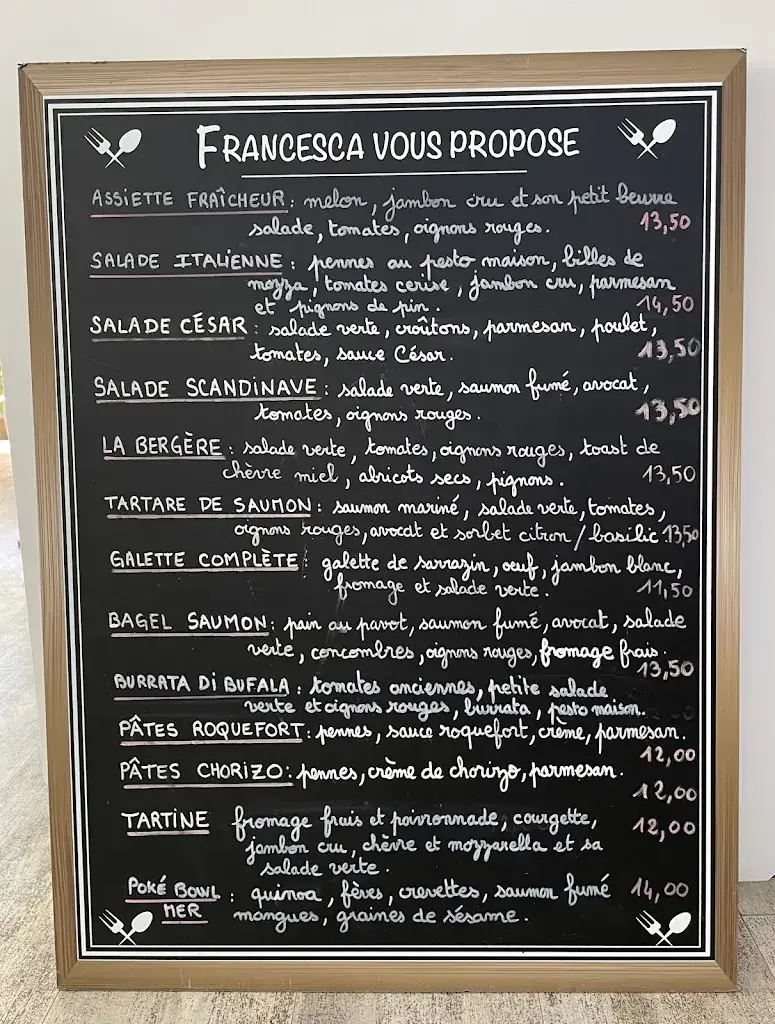 FRANCESCA VOUS PROPOSE
ASSIETTE FRAÎCHEUR : melon, jambon cru et son petit beurre
salade, tomates, oignons rouges. 13,50
SALADE ITALIENNE : pennes au pesto maison, billes de
mozza, tomates cerise, jambon cru, parmesan
et pignons de pin. 14,50
SALADE CÉSAR : salade verte, croûtons, parmesan, poulet,
tomates, sauce César. 13,50
SALADE SCANDINAVE : salade verte, saumon fumé, avocat,
tomates, oignons rouges. 13,50
LA BERGÈRE : salade verte, tomates, oignons rouges, toast de
chèvre miel, abricots secs, pignons. 13,50
TARTARE DE SAUMON : saumon mariné, salade verte, tomates,
oignons rouges, avocat et sorbet citron / basilic 13,50
GALETTE COMPLÈTE : galette de sarrazin, oeuf, jambon blanc,
fromage et salade verte. 11,50
BAGEL SAUMON : pain au pavot, saumon fumé, avocat, salade
verte, concombres, oignons rouges, fromage frais.
13,50
BURRATA DI BUFALA : tomates anciennes, petite salade
verte et oignons rouges, burrata, pesto maison.
PÂTES ROQUEFORT : pennes, sauce roquefort, crème, parmesan.
12,00
PÂTES CHORIZO : pennes, crème de chorizo, parmesan.
12,00
TARTINE fromage frais et poivronnade, courgette, 12,00
jambon cru, chèvre et mozzarella et sa
salade verte.
POKÉ BOWL : quinoa, fèves, crevettes, saumon fumé 14,00
MER mangues, graines de sésame.